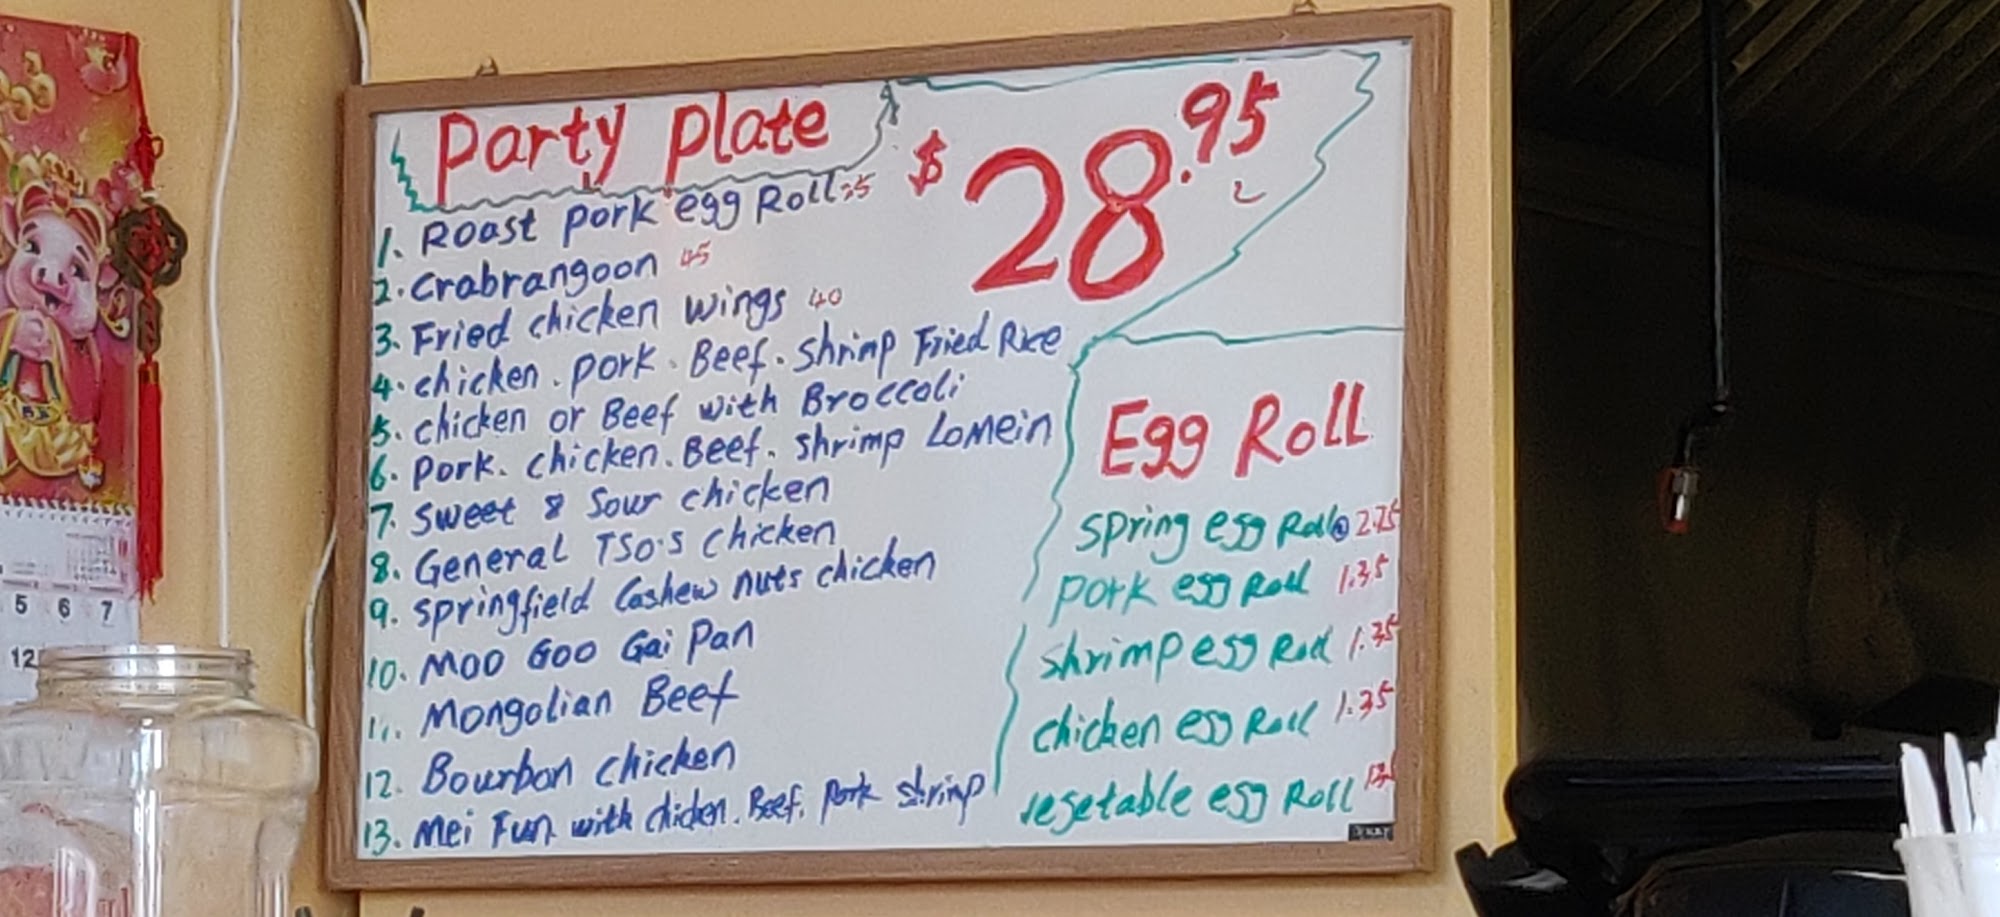 Party Plate
$28.95
1. Roast pork egg Roll
2. Crabrangoon 45
3. Fried chicken wings 40
4. chicken . pork . Beef . shrimp Fried Rice
5. chicken or Beef with Broccoli
6. pork . chicken . Beef . shrimp Lomein
7. Sweet & Sour chicken
8. General TSO'S chicken
9. springfield Cashew nuts chicken
10. MOO GOO Gai Pan
11. Mongolian Beef
12. Bourbon chicken
13. Mei Fun with chicken . Beef . pork shrimp
Egg Roll
spring egg Roll 2.75
pork egg Roll 1.35
shrimp egg Roll 1.35
chicken egg Roll 1.35
vegetable egg Roll
5 6 7
12